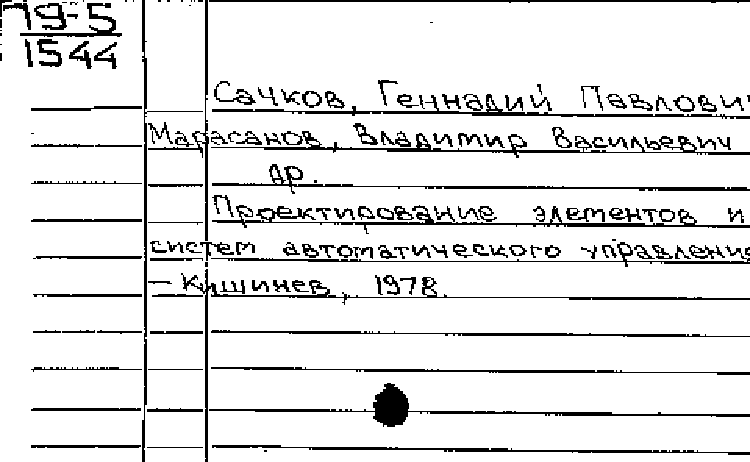 П9-5
1544
Сачков, Геннадий Павлович
Марасанов, Владимир Васильевич
др.
Проектирование элементов и
систем автоматического управление
– Кишинев, 1978.